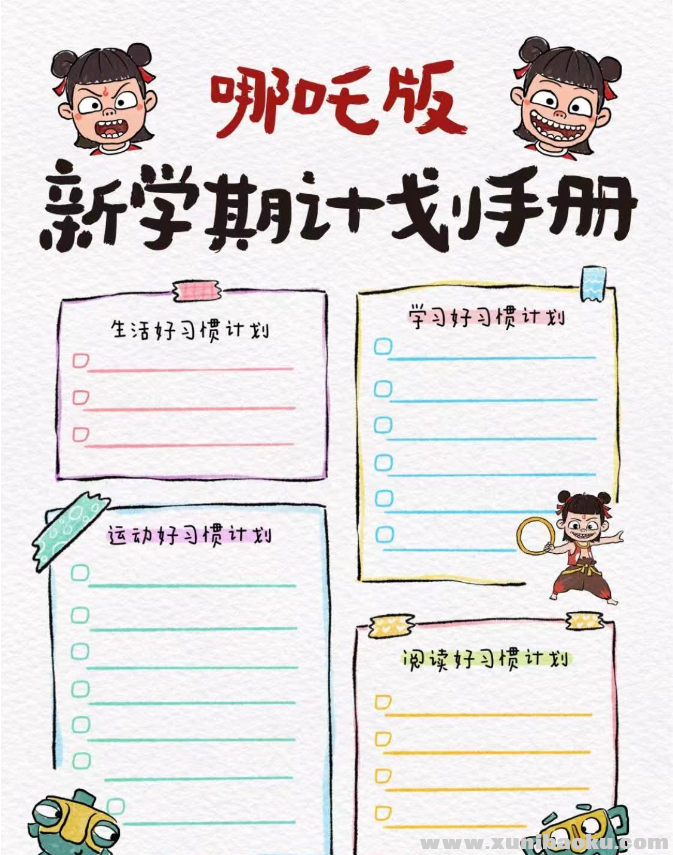 哪吒版
新学期计划手册
生活好习惯计划
学习好习惯计划
运动好习惯计划
阅读好习惯计划
www.xunihaoku.com